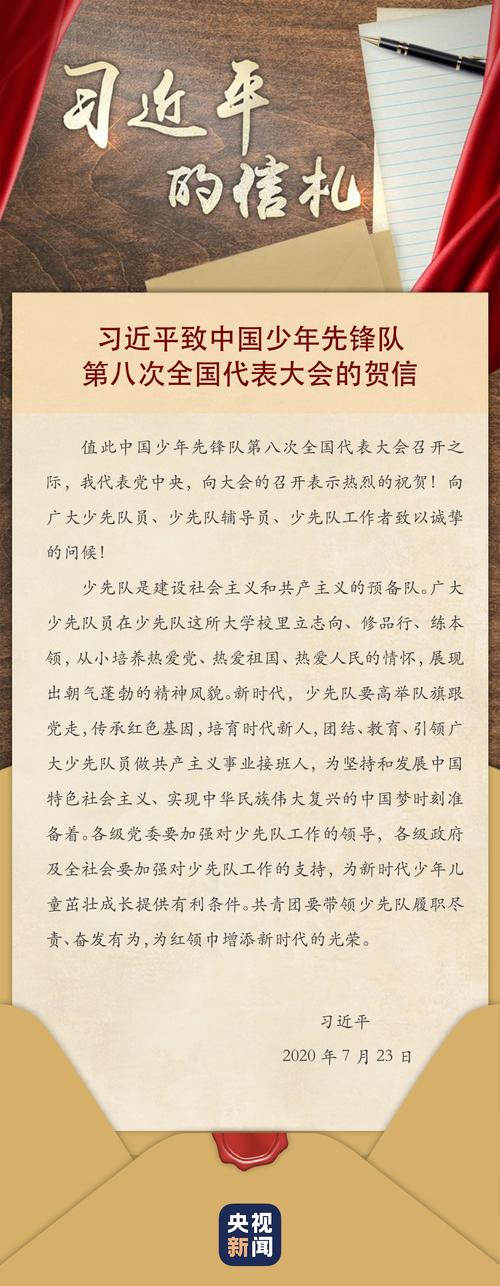 习近平
的信札
习近平致中国少年先锋队
第八次全国代表大会的贺信
值此中国少年先锋队第八次全国代表大会召开之
际，我代表党中央，向大会的召开表示热烈的祝贺！向
广大少先队员、少先队辅导员、少先队工作者致以诚挚
的问候！
少先队是建设社会主义和共产主义的预备队。广大
少先队员在少先队这所大学校里立志向、修品行、练本
领，从小培养热爱党、热爱祖国、热爱人民的情怀，展现
出朝气蓬勃的精神风貌。新时代，少先队要高举队旗跟
党走，传承红色基因，培育时代新人，团结、教育、引领广
大少先队员做共产主义事业接班人，为坚持和发展中国
特色社会主义、实现中华民族伟大复兴的中国梦时刻准
备着。各级党委要加强对少先队工作的领导，各级政府
及全社会要加强对少先队工作的支持，为新时代少年儿
童茁壮成长提供有利条件。共青团要带领少先队履职尽
责、奋发有为，为红领巾增添新时代的光荣。
习近平
2020年7月23日
央视
新闻